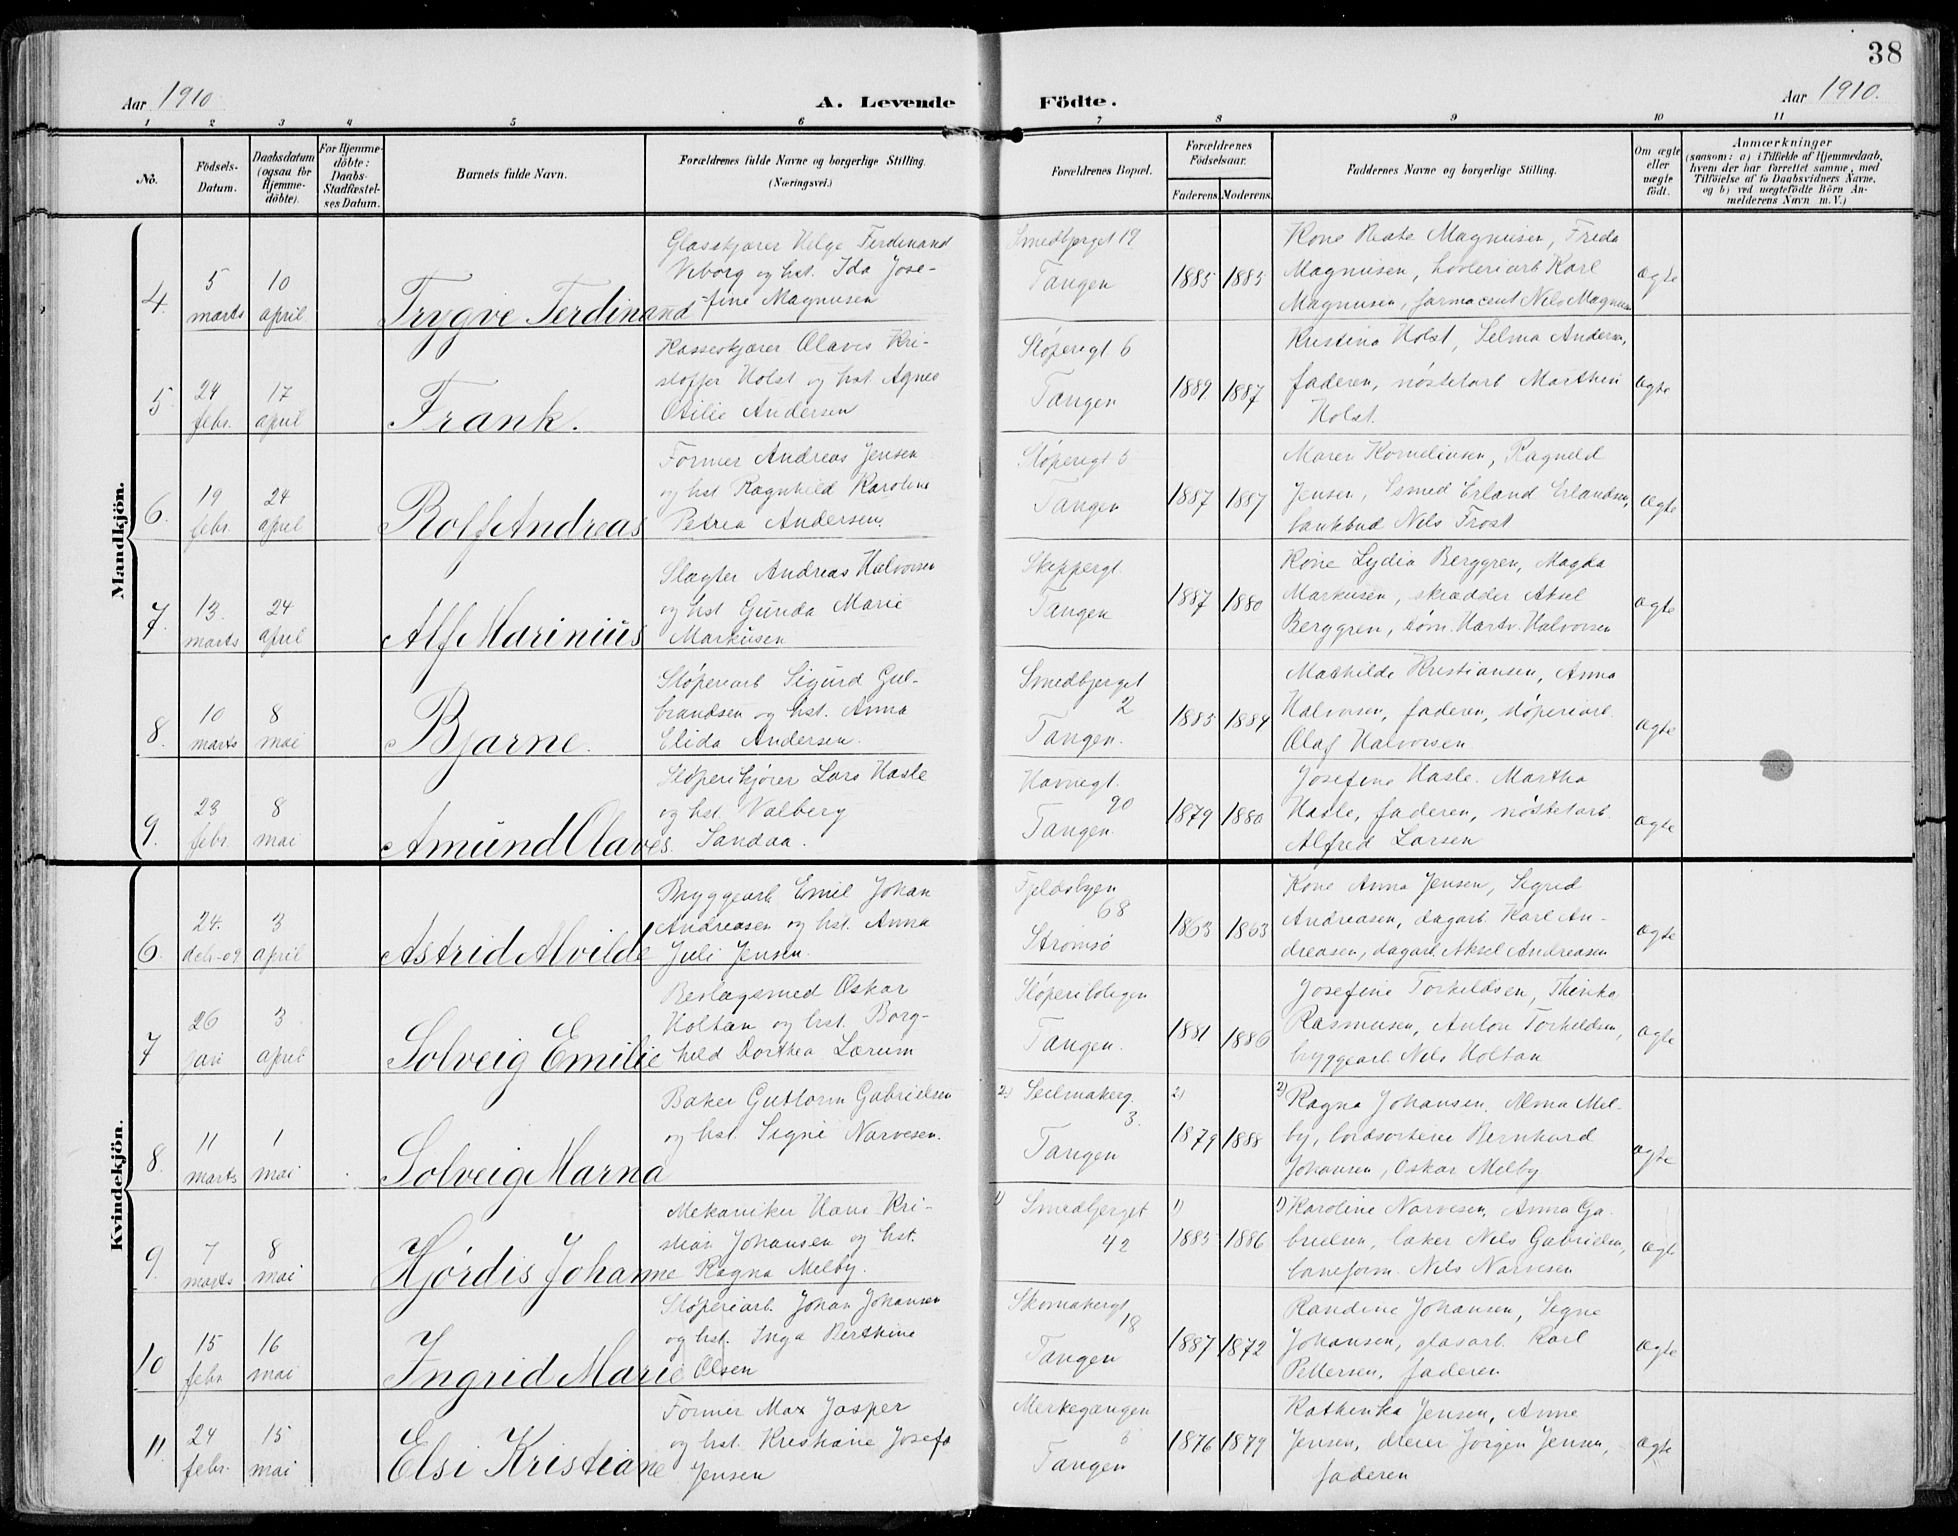 38
Aar 1910.
A. Levende Födte.
Aar 1910.
1 2 3 4 5 6 7 8 9 10 11
No.
Födsels-Datum.
Daabsdatum (ogsaa for Hjemme-döbte).
For Hjemme-döbte: Daabs-Stadfæstel-ses Datum.
Barnets fulde Navn.
Forældrenes fulde Navne og borgerlige Stilling.
(Næringsvei.)
Forældrenes Bopæl.
Forældrenes Födselsaar.
Faderens. Moderens.
Faddernes Navne og borgerlige Stilling.
Om ægte eller uægte födt.
Anmærkninger
(saasom: a) i Tilfælde af Hjemmedaab,
hvem der har forrettet samme, med
Tilföielse af to Daabsvidners Navne,
og b) ved uægtefödte Börn An-
melderens Navn m. V.)
Mandkjön.
4. 5 marts 10 april Trygve Ferdinand
Glasskjører Helge Ferdinand
Viborg og hst. Ida Jose-
fine Magnusen
Smedbjerget 19
Tangen
1885 1885
Kone Beate Magnusen, Frida
Magnusen, høvleriarb Karl
Magnusen, farmaceut Nils Magnusen
ægte
5. 24 febr. 17 april Frank.
Kasseskjører Olaves Kri-
stoffer Holst og hst Agnes
Otilie Andersen
Støperigt 6
Tangen
1889 1887
Kristina Holst, Selma Andersen,
faderen, nøstetarb Marthin
Holst.
ægte
6. 19 febr. 24 april Rolf Andreas
Former Andreas Jensen
og hst Ragnhild Karoline
Petrea Andersen.
Støperigt 5
Tangen
1887 1887
Maren Korneliusen, Ragnhild
Jensen, Smed Erland Erlandsen,
bankbud Nils Frost
ægte
7. 13. marts 24 april Alf Marinius
Slagter Andreas Halvorsen
og hst Gunda Marie
Markusen
Skippergt
Tangen
1887 1880
Kone Lydia Berggren, Magda
Markusen, skrædder Aksel
Berggren, tøm. Hartv. Halvorsen
ægte
8. 10 marts 8 mai Bjarne.
Støperiarb Sigurd Gul-
brandsen og hst. Anna
Elida Andersen.
Smedbjerget
2
Tangen.
1885 1884
Mathilde Kristiansen, Anna
Halvorsen, faderen, støperiarb.
Olaf Halvorsen
ægte
9. 23 febr. 8 mai Amund Olaves.
Støperikjører Lars Hasle
og hst. Valberg
Sandaa.
Havnegt.
90
Tangen.
1879 1880
Josefine Hasle. Martha
Hasle, faderen, nøstetarb.
Alfred Larsen
ægte
Kvindekjön.
6. 24. deb-09 3 april Astrid Alvilde
Bryggearb Emil Johan
Andreasen og hst. Anna
Juli Jensen.
Fjeldsbyen
68
Strømsø
1863 1863
Kone Anna Jensen, Sigrid
Andreasen, dagarb. Karl An-
dreasen, dagarb. Aksel Andreasen
ægte
7 26 jan 3 april Solveig Emilie
Beslagsmed Oskar
Holtan og hst. Borg-
hild Dorthea Lærum
Støperiboligen
Tangen.
1881 1886
Josefine Torkildsen, Thinka
Rasmusen, Anton Torkildsen,
bryggearb. Nils Holtan
ægte
8. 11 marts 1 mai Solveig Marna
Baker Guttorm Gabrielsen
og hst. Signe Narvesen.
2) Seilmakerg.
3.
Tangen
2)
1879 1888
2) Ragna Johansen, Alma Mel-
by, bordsorterer Bernhard
Johansen, Oskar Melby
ægte
9. 7 marts 8 mai Hjørdis Johanne
Mekaniker Hans Kri-
stian Johansen og hst.
Ragna Melby.
1) Smedbjerget
42
1)
1885 1886
1) Karoline Narvesen, Anna Ga-
brielsen, baker Nils Gabrielsen,
baneform. Nils Narvesen
ægte
10 15 febr 16 mai Ingrid Marie
Støperiarb. Johan Johansen
og hst. Inga Berthine
Olsen
Skomakergt
18
Tangen
1887 1872
Randine Johansen, Signe
Johansen, glasarb. Karl
Pettersen, faderen
ægte
11. 24 febr. 15 mai Elsi Kristiane
Former Max Jasper
og hst. Kristiane Josefa
Jensen
Merkegangen
Tangen
1876 1879
Kathinka Jensen, Anne
Jensen, dreier Jørgen Jensen,
faderen
ægte